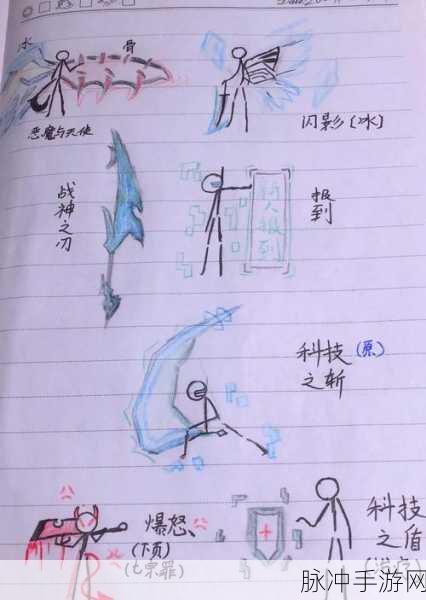 冰
骨
恶魔与天使
闪影(冰)
战神之刃
新人报到
报到
科技(原)
之斩
爆怒
(下页)
(七宗罪)
科技
之盾
(治疗)
脉冲手游网